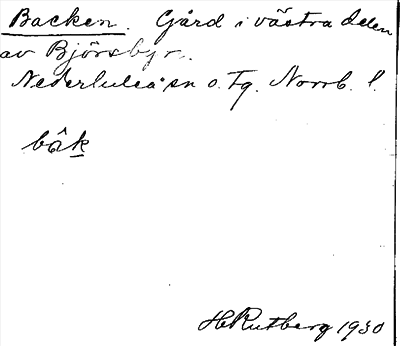 Backen. Gård i västra delen
av Björsbyn.
Nederluleå sn o. Tg. Norrb. l.
bâk
H Rutberg 1930